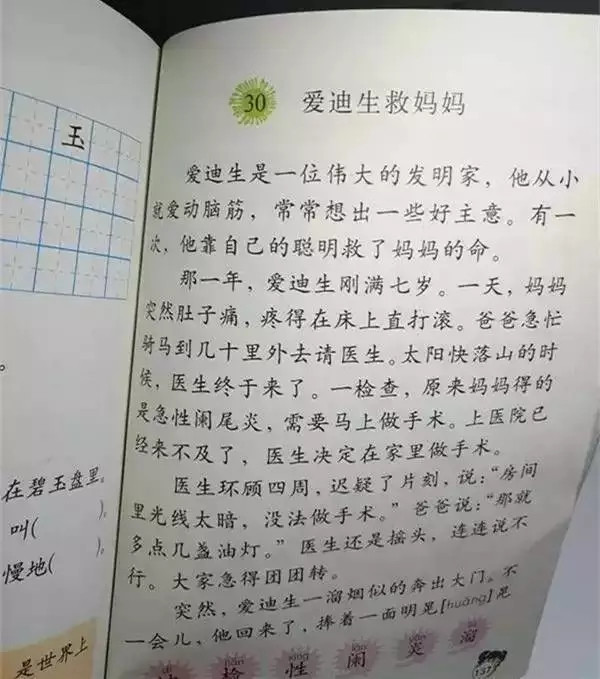 玉
。
在碧玉盘里。
叫(　　)。
慢地(　　)。
是世界上
30 爱迪生救妈妈
爱迪生是一位伟大的发明家，他从小
就爱动脑筋，常常想出一些好主意。有一
次，他靠自己的聪明救了妈妈的命。
那一年，爱迪生刚满七岁。一天，妈妈
突然肚子痛，疼得在床上直打滚。爸爸急忙
骑马到几十里外去请医生。太阳快落山的时
候，医生终于来了。一检查，原来妈妈得的
是急性阑尾炎，需要马上做手术。上医院已
经来不及了，医生决定在家里做手术。
医生环顾四周，迟疑了片刻，说：“房间
里光线太暗，没法做手术。”爸爸说：“那就
多点几盏油灯。”医生还是摇头，连连说不
行。大家急得团团转。
突然，爱迪生一溜烟似的奔出大门。不
一会儿，他回来了，捧着一面明晃[huǎng]晃
dí jiǎn xìng
迪 检 性 阑 炎 溜
157